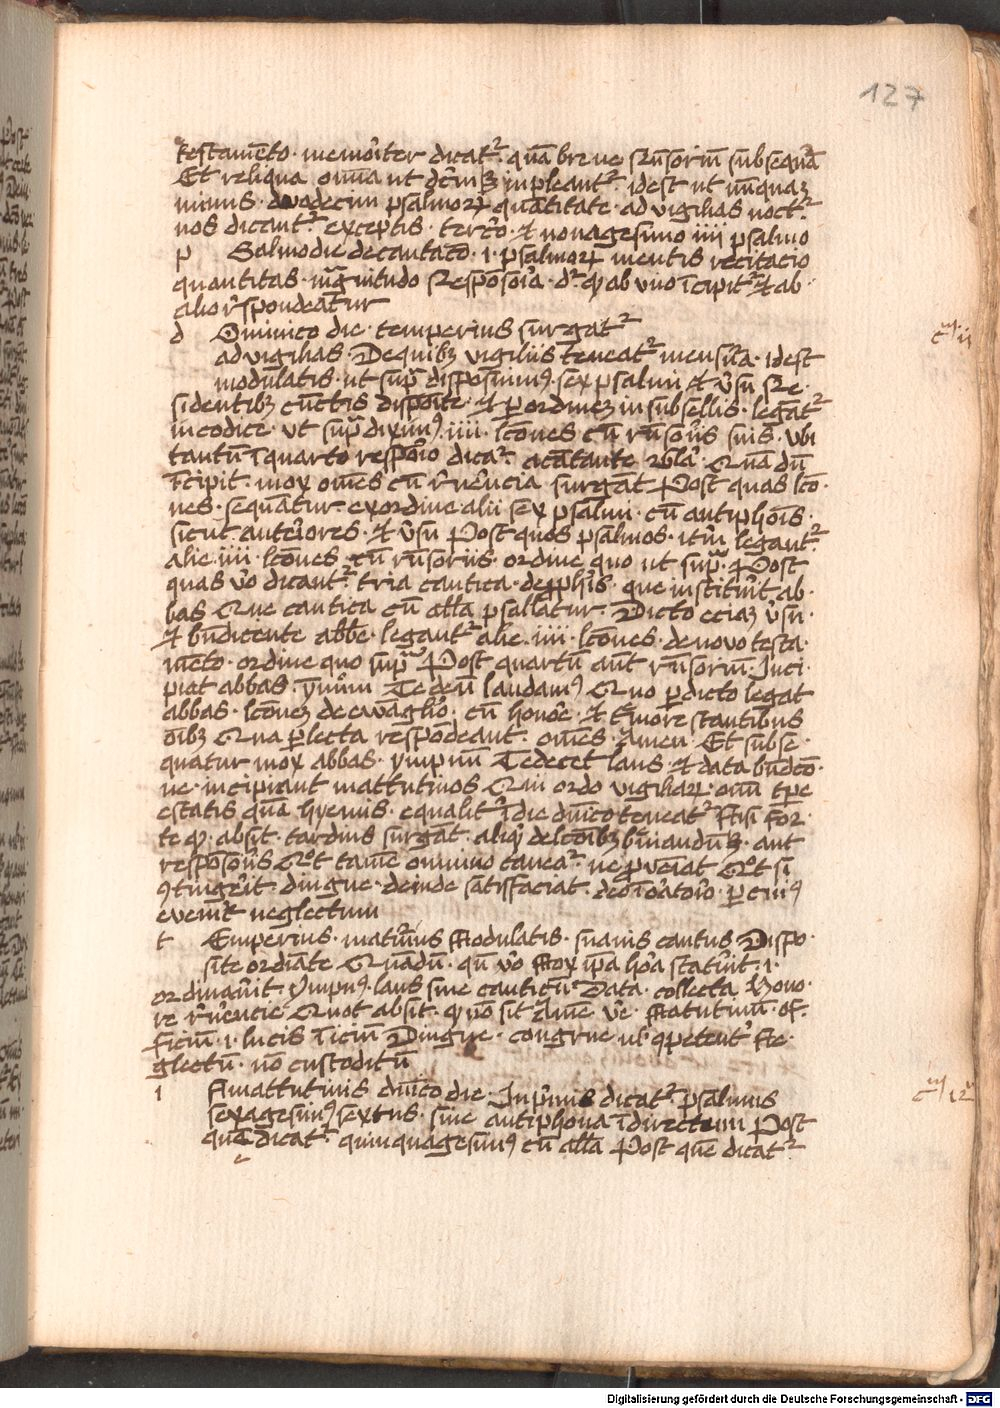 127
testamēto · memoriter dicatr̄ · quā breve rn̄soriū subsequat̄
Et reliqua omīa ut dc̄m ē inpleantr̄ · idest ut nūquaꝫ
minus · duodecim psalmorꝝ quātitate · ad vigilias noctr̄
nos dicantr̄ · exceptis · tercō · et nonagesimo iiii psalmo
p Salmodie decantacō · i · psalmorꝝ mentis recitacio
quantitas · magnitudo Responsoria · dr̄ ꝙ ab uno īcipitr̄ et ab ·
alio rn̄spondeātur
d Ominico die · temperius surgatr̄
ad vigilias · De quibꝫ vigiliis teneatr̄ mensura · idest
modulatis · ut supra disposuimꝰ · sex psalmi et v̄su Re ·
sidentibꝫ cūctis disposite · et per ordineꝫ in subsellis · legātr̄
in codice · ut supra diximꝰ · iiii · lcōnes cū rn̄soriis suis · ubi
tantū ī quarto respōsorio dicatr̄ · a cātante gl̄ia · Quā dū
īcipit · mox omēs cū r̄verēncia surgāt Post quas lcō ·
nes · sequātur ex ordine alii sex psalmi · cū antiphōis ·
sicut anteriores · et v̄su Post quos psalmos · itm̄ legantr̄
alie · iiii · lcōnes · cū rn̄soriis · ordine quo ut supra · Post
quas v̄o dicantr̄ tria cantica · de ꝓphis · que instituit ab ·
bas Que cantica cū all̄a psallātur Dicto eciaꝫ v̄su ·
et bn̄dicente abbē · legantr̄ alie · iiii · lcōnes · de novo testa ·
mēto · ordine quo supra Post quartū aūt rn̄soriū Inci ·
piat abbas · ymnum Te deū laudamꝰ Quo perdicto legat
abbas · lcōneꝫ de ewāglio · cū honōre · et t̄more stantibus
oībꝫ Qua perlecta respōdeant · omēs · Amen Et subse ·
quatur mox abbas · ympnū Te decet laus et data bn̄dcō ·
ne · incipiant mattutinos Qui ordo vigiliarꝝ · omī tpe
estatis quā hyemis · equalitr̄ ī die dn̄ico teneatr̄ Nisi for ·
te ꝙ · absit · tardius surgāt · aliqͥd de lcōibꝫ br̄viandū ē · aut
respōsoriis Qͦt tamē omnino caveatr̄ · ne proveniat Qͦt si
ꝯtingerit · digne · deinde satisfaciat · deo ī oratorio · per cuiꝰ
evenerit neglectum
t Emperius · maturius Modulatis · suavis cantus Dispo ·
site ordīate Quādū · qn̄ v̄o Mox ipa hora statuit · i ·
ordinavit Ympnꝰ · laus sine canticū Data · collecta Hono ·
re r̄verēncie Quot absit · ꝙ nō sit Amē v̄e · Matutinū · of ·
ficiū · i · lucis īiciū Digne · congrue ul̄ ꝯpetent̄ Ne ·
glectū · nō custoditū
c ii
1 N mattutinis dn̄ico die · In primis dicatr̄ psalmus
c 12
sexagesimꝰ sextus · sine antiphona īdirectum Post
quē dicatr̄ · quinquagesimꝰ cū all̄a Post quē dicatr̄
Digitalisierung gefördert durch die Deutsche Forschungsgemeinschaft - DFG